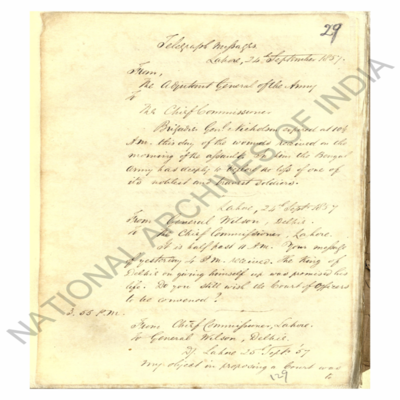 29
Telegraph Messages
Lahore, 24th September 1857.
From,
The Adjutant General of the Army
To
The Chief Commissioner
Brigadier Genl. Nicholson expired at 10½
A.M. this day of the wounds received on the
morning of the assault. In him the Bengal
Army has deeply to the loss of one of
its noblest and bravest soldiers.
Lahore, 24th Septr. 1857
From General Wilson, Delhi.
To The Chief Commissioner, Lahore.
It is half past A.M. Your message
of yesterday 4 P.M. received. The King of
Delhi on giving himself up was promised his
life. Do you still wish the Court of Officers
to be convened?
3. 55 P.M.
From Chief Commissioner, Lahore.
To General Wilson, Delhi.
Lahore 25th Septr. 57
My object in proposing a Court was
to
129
NATIONAL ARCHIVES OF INDIA